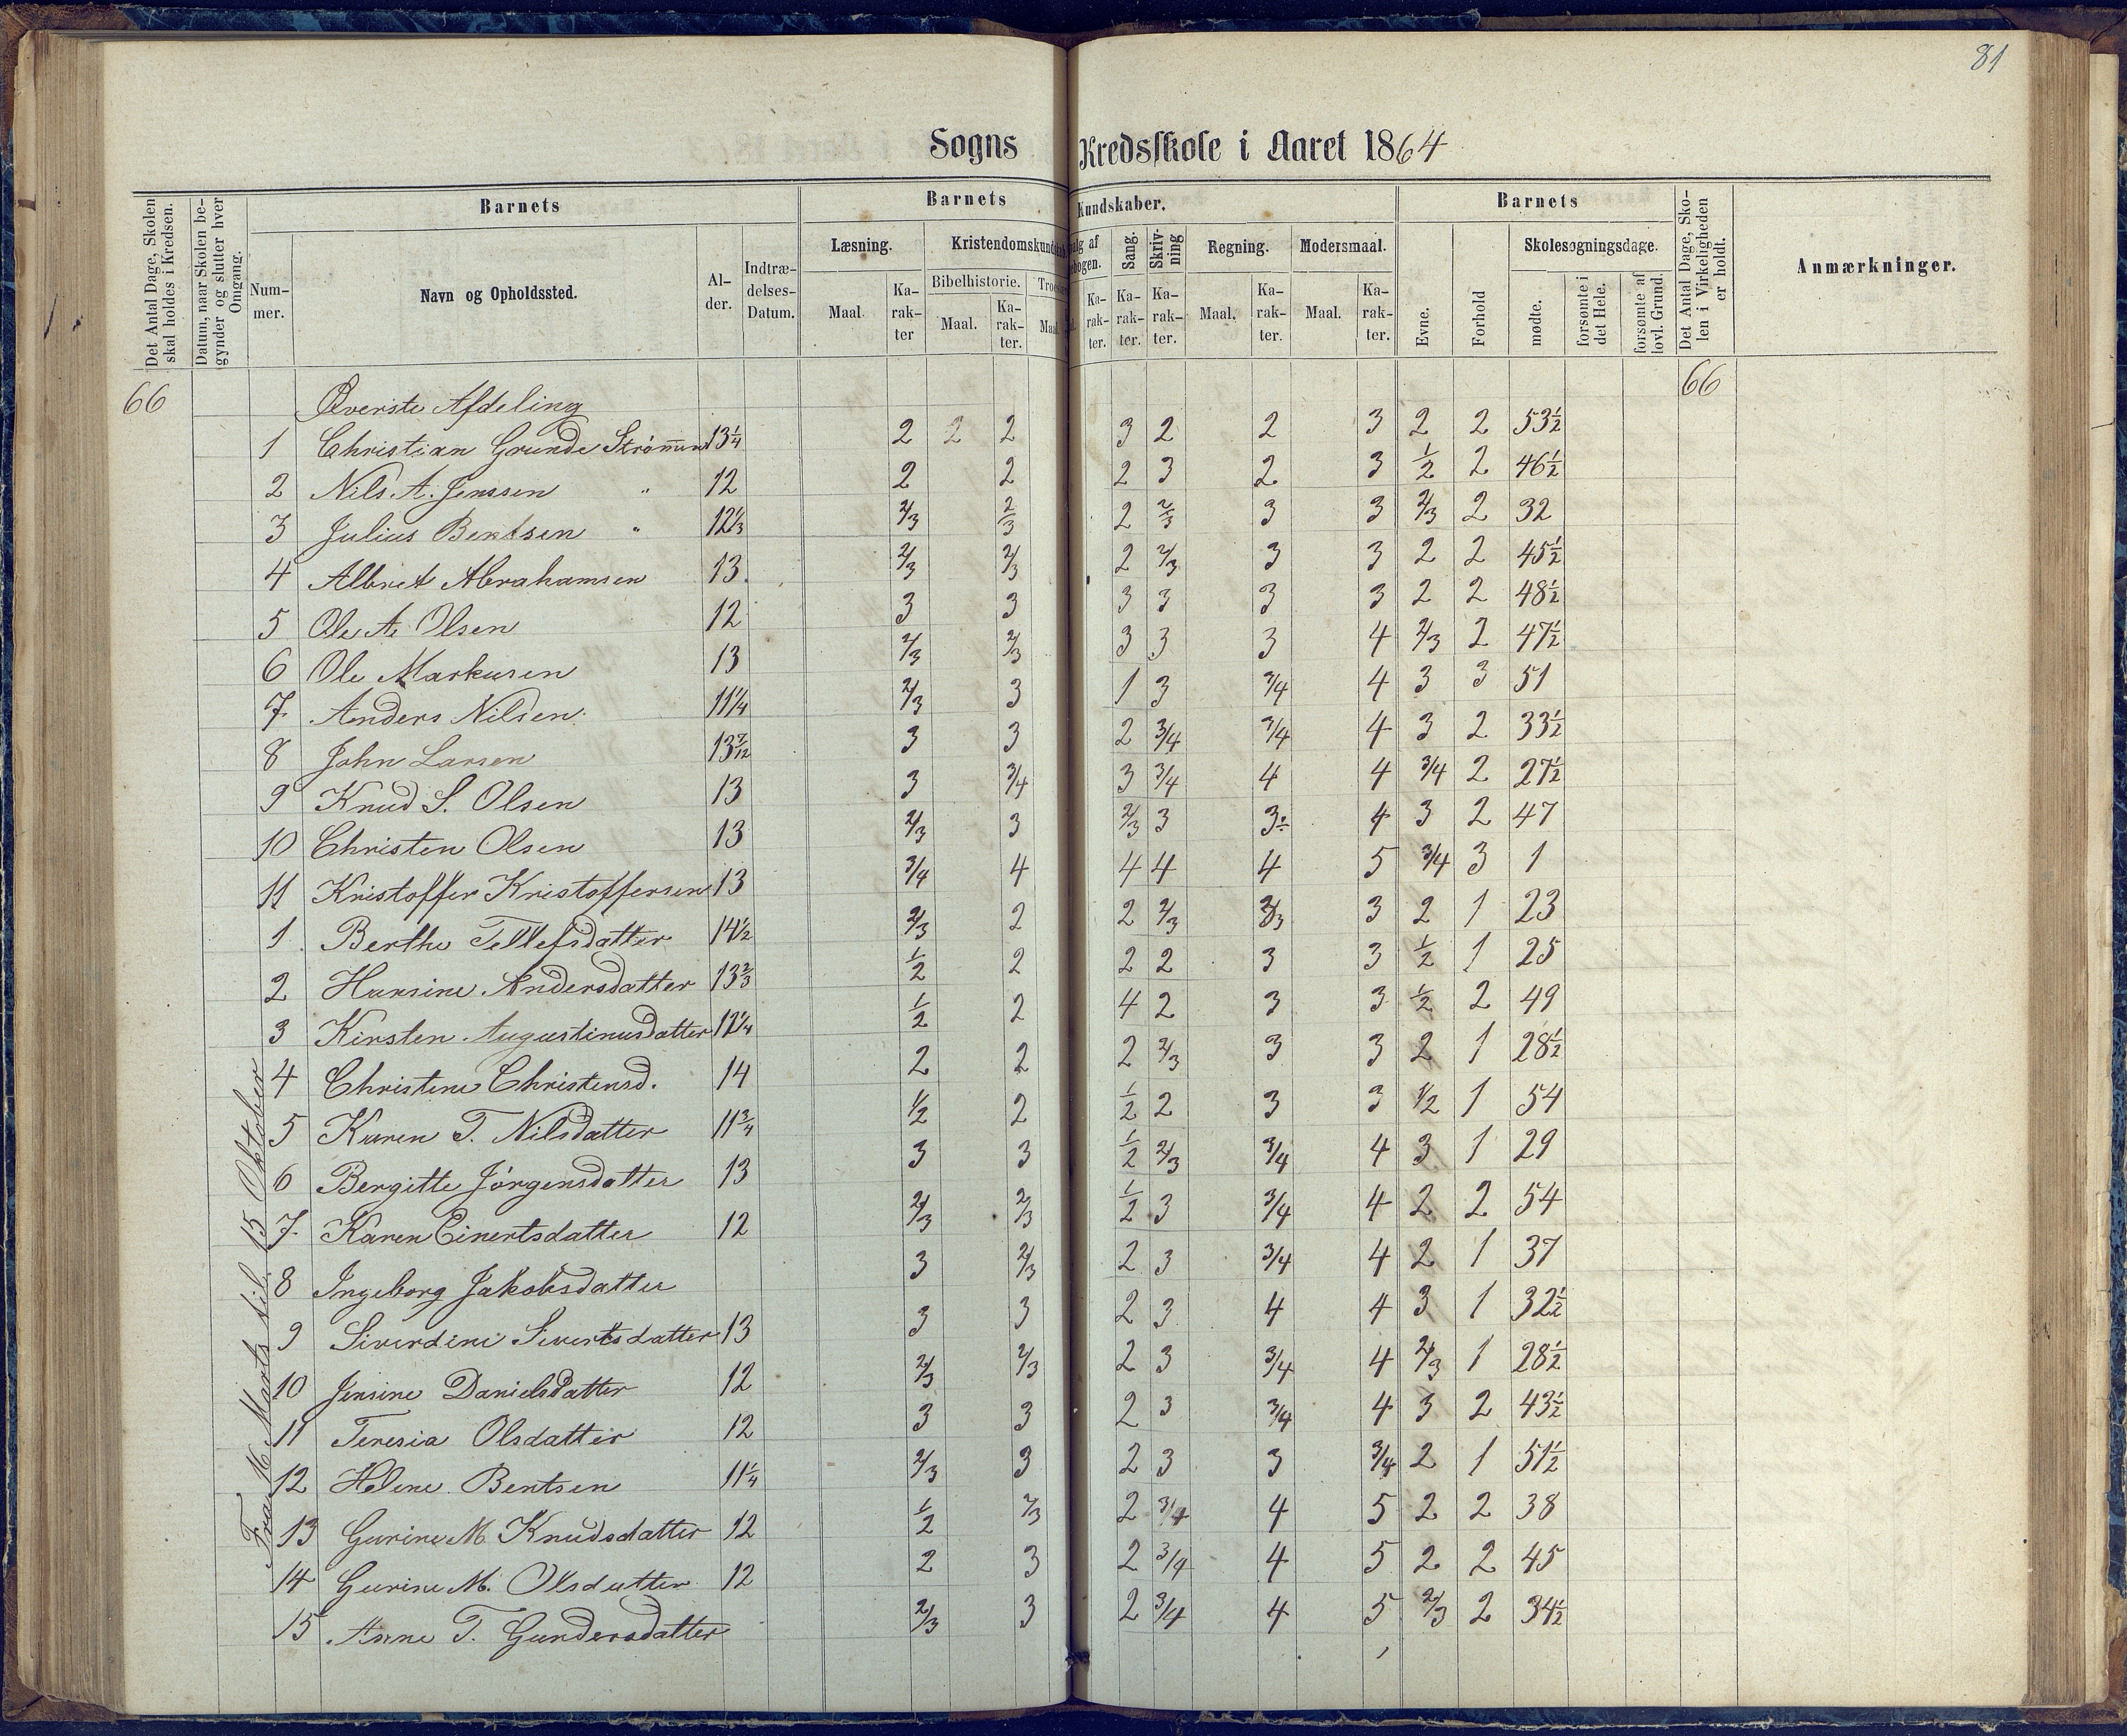 81
Sogns Kredsskole i Aaret 1864
Det Antal Dage, Skolen skal holdes i Kredsen.
Datum, naar Skolen begynder og slutter hver Omgang.
Barnets
Nummer.
Navn og Opholdssted.
Alder.
Indtrædelses-Datum.
Barnets Kundskaber.
Læsning.
Maal. Karakter
Kristendomskundskab
Bibelhistorie.
Maal. Karakter.
Sang. Karakter.
Skrivning Karakter.
Regning. Maal. Karakter.
Modersmaal. Maal. Karakter.
Barnets
Evne.
Forhold
Skolesøgningsdage.
mødte.
forsømte i det Hele.
forsømte af lovl. Grund.
Det Antal Dage, Skolen i Virkeligheden er holdt.
Anmærkninger.
Fra 16 Marts til 15 Oktober
66 Øverste Afdeling 66
1 Christian Grunde Strømmen 13 1/4 2 2 2 3 2 2 3 2 2 53 1/2
2 Nils A. Jenssen " 12 2 2 2 3 2 3 1/2 2 46 1/2
3 Julius Bentsen " 12 1/3 2/3 2/3 2 2/3 3 3 2/3 2 32
4 Albret Abrahamsen 13 2/3 2/3 2 2/3 3 3 2 2 45 1/2
5 Ole A. Olsen 12 3 3 3 3 3 3 2 2 48 1/2
6 Ole Markusen 13 2/3 2/3 3 3 3 4 2/3 2 47 1/2
7 Anders Nilsen 11 1/4 2/3 3 1 3 3/4 4 3 3 51
8 John Larsen 13 7/12 3 3 2 3/4 3/4 4 3 2 33 1/2
9 Knud S. Olsen 13 3 3/4 3 3/4 4 4 3/4 2 27 1/2
10 Christen Olsen 13 2/3 3 2/3 3 3÷ 4 3 2 47
11 Kristoffer Kristoffersen 13 3/4 4 4 4 4 5 3/4 3 1
1 Berthe Tellefsdatter 14 1/2 2/3 2 2 2/3 2/3 3 2 1 23
2 Hansine Andersdatter 13 2/3 1/2 2 2 2 3 3 1/2 1 25
3 Kirsten Augustinusdatter 12 1/4 1/2 2 4 2 3 3 1/2 2 49
4 Christine Christensd. 14 2 2 2 2/3 3 3 2 1 28 1/2
5 Karen T. Nilsdatter 11 3/4 1/2 2 1/2 2 3 3 1/2 1 54
6 Bergitte Jørgensdatter 13 3 3 1/2 2/3 3/4 4 3 1 29
7 Karen Einertsdatter 12 2/3 2/3 1/2 3 3/4 4 2 2 54
8 Ingeborg Jakobsdatter 3 2/3 2 3 3/4 4 2 1 37
9 Siverdine Sivertsdatter 13 3 3 2 3 4 4 3 1 32 1/2
10 Jensine Danielsdatter 12 2/3 2/3 2 3 3/4 4 2/3 1 28 1/2
11 Teresia Olsdatter 12 3 3 2 3 3/4 4 3 2 43 1/2
12 Helene Bentsen 11 1/4 2/3 3 2 3 3 3/4 2 1 51 1/2
13 Gurine M. Knudsdatter 12 1/2 2/3 2 3/4 4 5 2 2 38
14 Gurine M. Olsdatter 12 2 3 2 3/4 4 5 2 2 45
15 Anne T. Gundersdatter 2/3 3 2 3/4 4 5 2/3 2 34 1/2